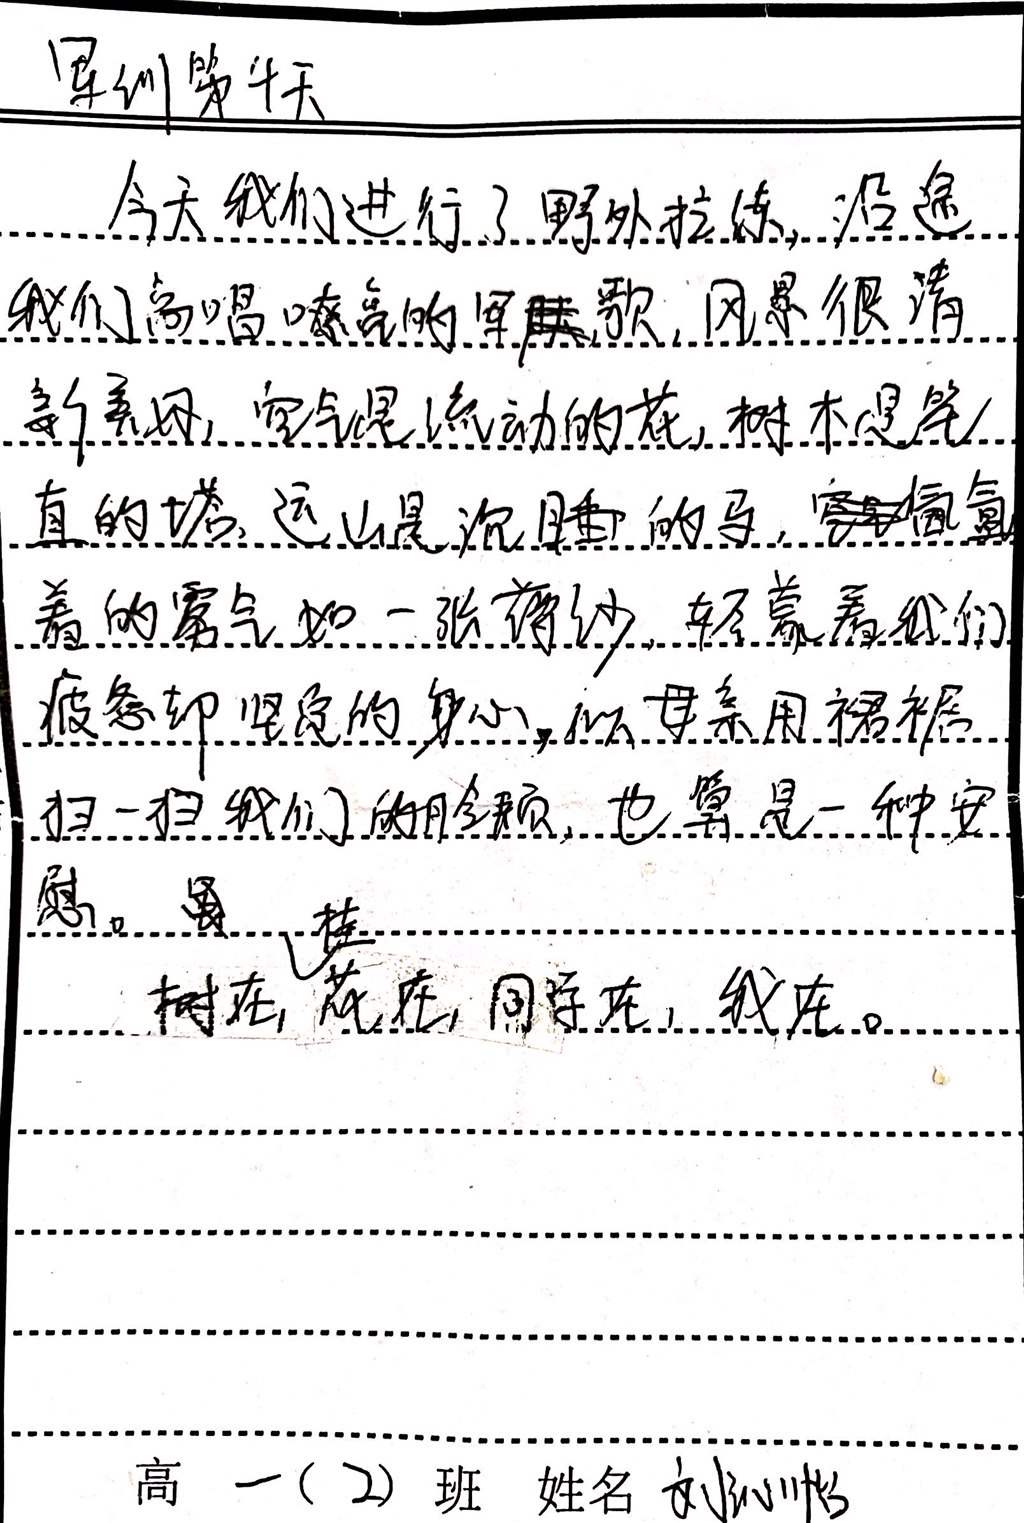 军训第七天
今天我们进行了野外拉练，沿途
我们高唱嘹亮的军歌，风景很清
新美丽，空气是流动的花，树木是笔
直的塔，远山是沉睡的马，氤氲
着的雾气如一张薄纱，轻幕着我们
疲惫却坚定的身心，似母亲用裙裾
扫一扫我们的脸颊，也算是一种安
慰。
树在，桂花在，同学在，我在。
高一（2）班 姓名 刘